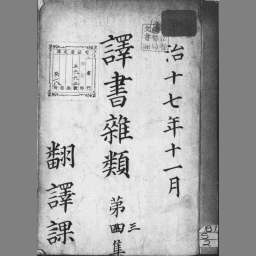 治十七年十一月
譯書雜類
第四集
三
翻譯課